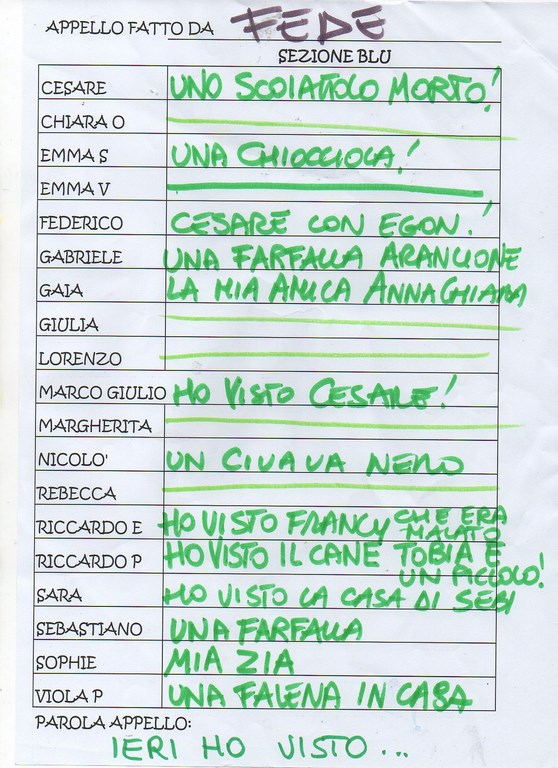 APPELLO FATTO DA FEDE
SEZIONE BLU
CESARE UNO SCOIATTOLO MORTO!
CHIARA O
EMMA S UNA CHIOCCIOLA!
EMMA V
FEDERICO CESARE CON EGON!
GABRIELE UNA FARFALLA ARANCIONE
GAIA LA MIA AMICA ANNACHIARA
GIULIA
LORENZO
MARCO GIULIO HO VISTO CESARE!
MARGHERITA
NICOLO' UN CIUAUA NERO
REBECCA
RICCARDO E HO VISTO FRANCY CHE ERA
MALATO
RICCARDO P HO VISTO IL CANE TOBIA E
UN PICCOLO!
SARA HO VISTO LA CASA DI SEBI
SEBASTIANO UNA FARFALLA
SOPHIE MIA ZIA
VIOLA P UNA FALENA IN CASA
PAROLA APPELLO:
IERI HO VISTO...